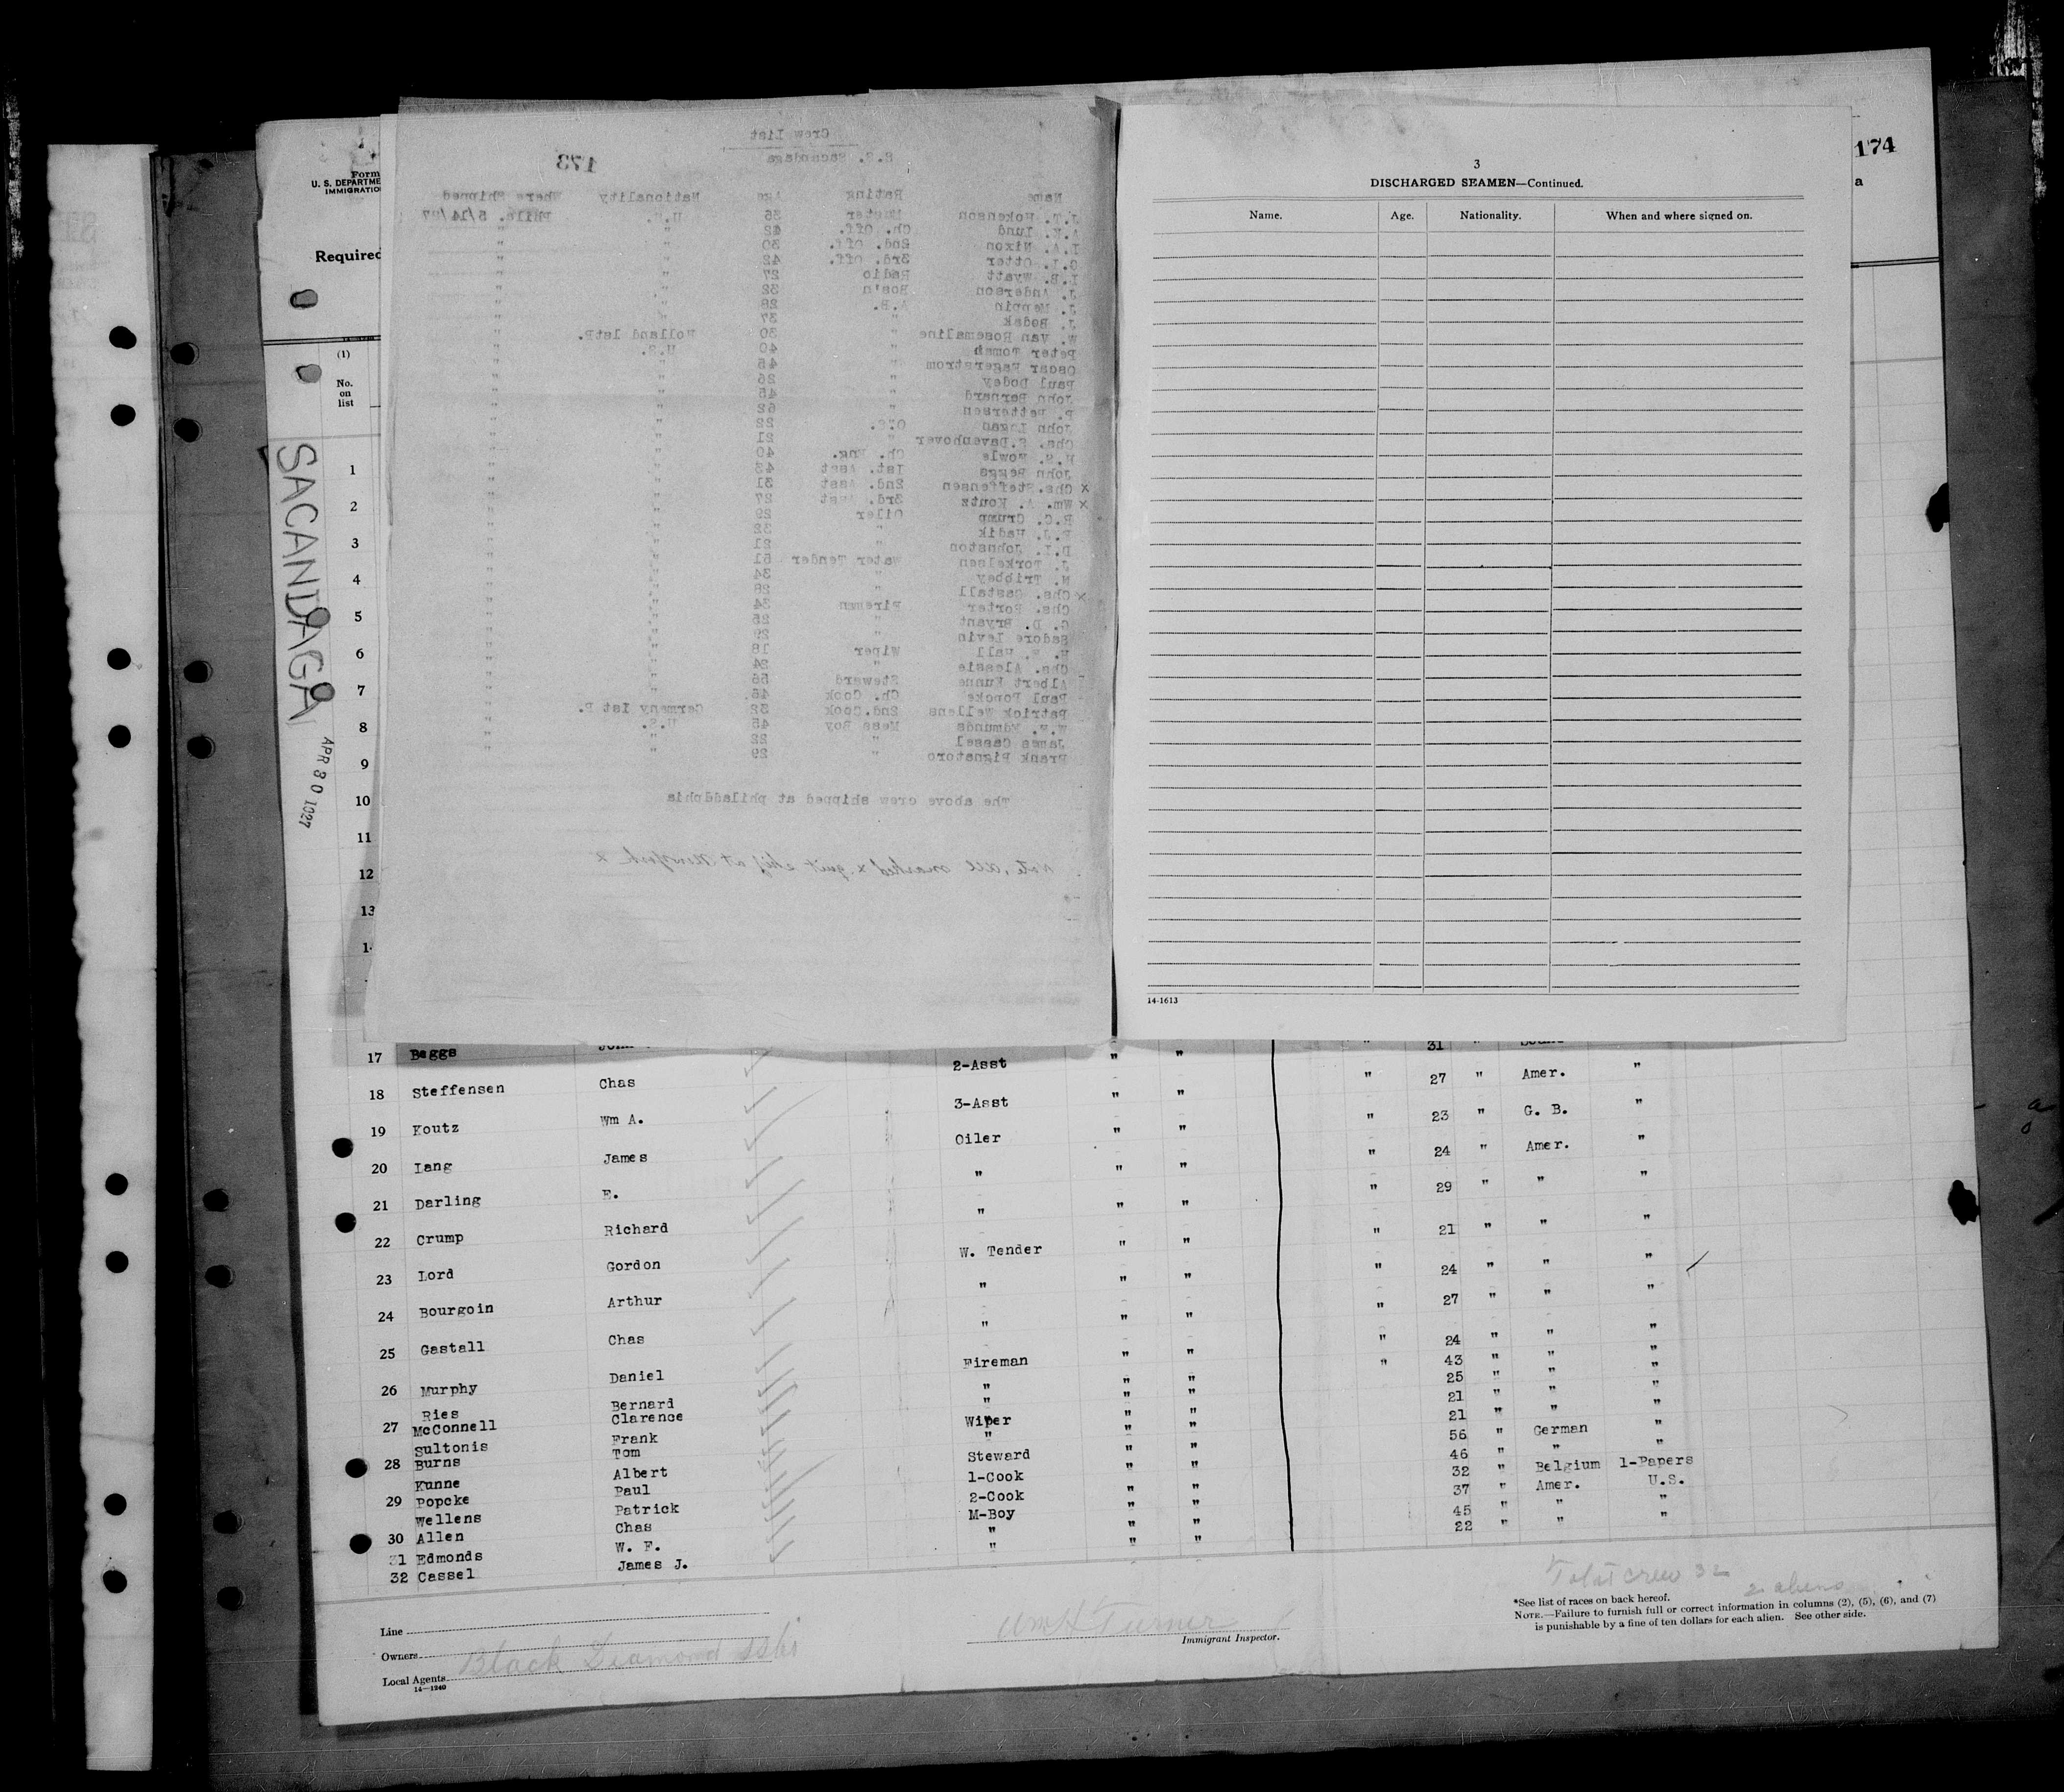 Form
U. S. DEPARTME
IMMIGRATIO
Required
(1)
No.
on
list
SACANDAGA
APR 30 1927
1
2
3
4
5
6
7
8
9
10
11
12
13
1
Crew List
S.S. Sacandaga
173
Name Rating Age Nationality Where Shipped
J.T. Hokenson Master 36 U.S. Phila. 5/14/27
A.K. Lund Ch. Off. 42 " "
I.A. Nixon 2nd. Off. 30 " "
G.L. Otter 3rd. Off. 42 " "
I.B. Wyatt Radio 27 " "
J. Anderson Bos'n 32 " "
J. Meppin A.B. 28 " "
J. Bedak " 37 " "
W. Van Rosemaline " 30 Holland 1stP. "
Peter Toman " 40 U.S. "
Oscar Fagerstrom " 45 " "
Paul Dodey " 26 " "
John Bernard " 45 " "
P. Pettersen " 62 " "
John Logan O.S. 22 " "
Chs. F.Davenhover " 21 " "
H.S. Fowle Ch. Eng. 40 " "
John Beggs 1st. Asst 43 " "
x Chs. Steffensen 2nd. Asst 31 " "
x Wm. A. Koutz 3rd. Asst 27 " "
R.C. Crump Oiler 29 " "
F.J. Hadik " 32 " "
D.L. Johnston " 21 " "
J. Torkelsen Water Tender 51 " "
N. Tribbey " 34 " "
x Chs. Gastall " 28 " "
Chs. Porter Fireman 34 " "
G. D. Bryant " 25 " "
Sadore Levin " 29 " "
H. F. Hall Wiper 18 " "
Chs. Alessie " 24 " "
Albert Kunne Steward 56 " "
Paul Popcke Ch. Cook 46 " "
Patrick Wellens 2nd.Cook 32 Germany 1st P. "
W.F. Edmunds Mess Boy 45 U.S. "
James Cassel " 22 " "
Frank Pignatoro " 29 " "
The above crew shipped at philaddphia
Note, All marked x quit ship at New York x
174
a
3
DISCHARGED SEAMEN—Continued.
Name. Age. Nationality. When and where signed on.
14-1613
17 Beggs John 2-Asst " " " 31 "
18 Steffensen Chas 3-Asst " " " 27 " Amer. "
19 Koutz Wm A. Oiler " " " 23 " G. B. "
20 Lang James " " " " 24 " Amer. "
21 Darling E. " " " " 29 " " "
22 Crump Richard W. Tender " " " 21 " " "
23 Lord Gordon " " " " 24 " " "
24 Bourgoin Arthur " " " " 27 " " "
25 Gastall Chas Fireman " " " 24 " " "
26 Murphy Daniel " " " " 43 " " "
Ries Bernard " " " 25 " " "
27 McConnell Clarence Wiper " " 21 " " "
Sultonis Frank " " " 21 " " "
28 Burns Tom Steward " " 56 " German "
Kunne Albert 1-Cook " " 46 " " "
29 Popcke Paul 2-Cook " " 32 " Belgium 1-Papers
Wellens Patrick M-Boy " " 37 " Amer. U.S.
30 Allen Chas " " " 45 " " "
31 Edmonds W. F. " " " 22 " " "
32 Cassel James J.
Total crew 32
2 aliens
*See list of races on back hereof.
NOTE.—Failure to furnish full or correct information in columns (2), (5), (6), and (7)
is punishable by a fine of ten dollars for each alien. See other side.
Line
Owners
Local Agents Black Diamond
14—1240
Wm H Turner
Immigrant Inspector.